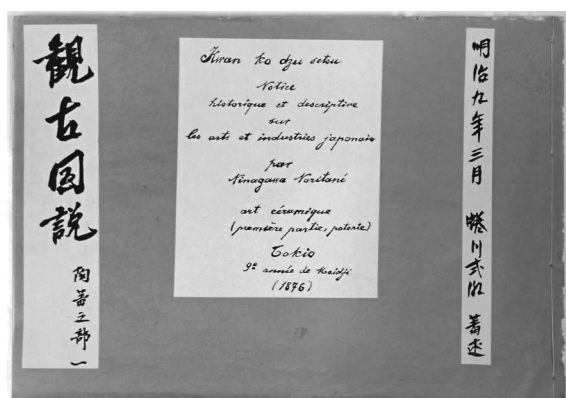 観古図説
陶器之部 一
Kwan ko dzu setsu
Notice
historique et descriptive
sur
les arts et industries japonais
par
Ninagawa Noritané
art céramique
(première partie, poterie)
Tokio
9e année de Meidji
(1876)
明治九年三月 蜷川式胤 著述